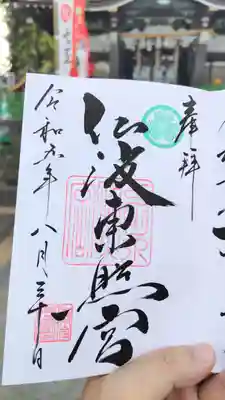 奉拝
仙波東照宮
令和六年八月三十一日